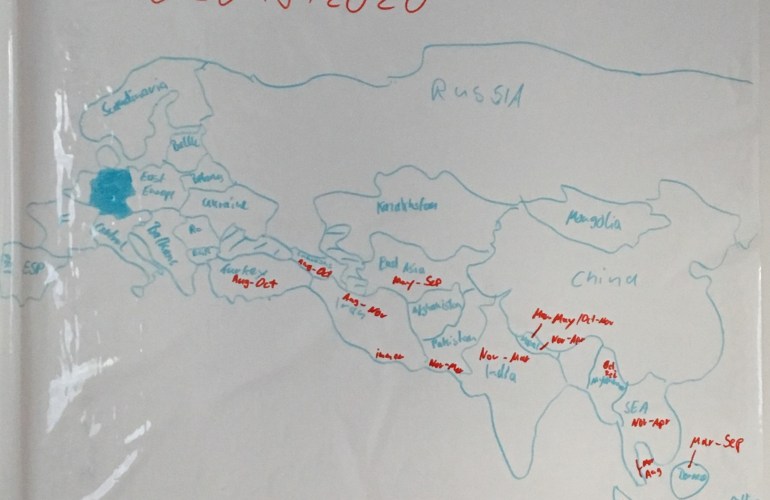 2020
RUSSIA
Scandinavia
Baltic
East
Europe
Ukraine
Kazakhstan
Mongolia
Balkans
ESP
Turkey
Aug-Oct
Aug-Oct
East Asia
May-Sep
China
Aug-Nov
Afghanistan
Pakistan
immer
Nov-Mar
Nov-Mar
India
Mar-May/Oct-Nov
Nov-Apr
SEA
Nov-Apr
Mar-Sep
Borneo